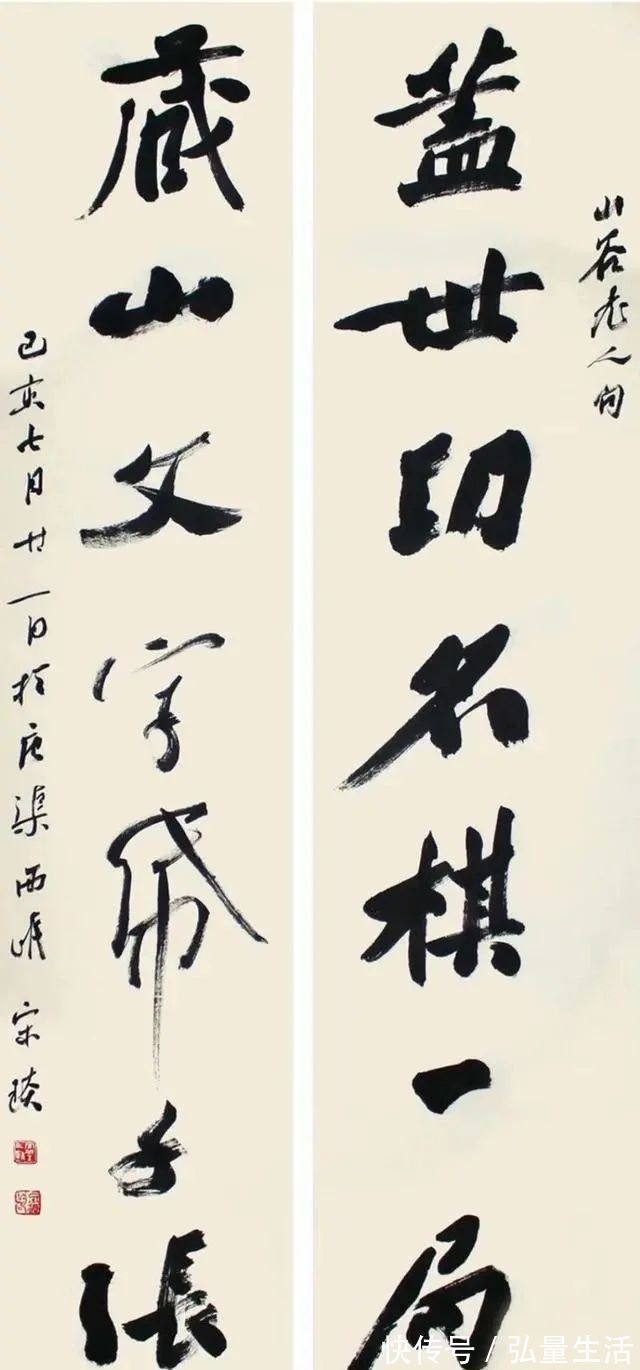 山谷老人句
蓋世功名棋一局
藏山文字帋千張
己亥七月廿一日於唐渠西 宋琰
快传号 / 弘量生活